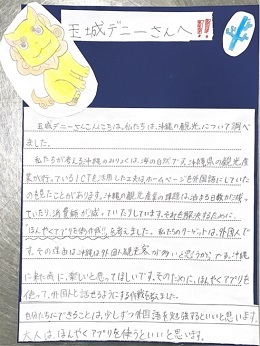 玉城デニーさんへ
玉城デニーさんこんにちは。私たちは、沖縄の観光について調べ
ました。
私たちが考える沖縄のみりょくは、海の自然です。沖縄県の観光産
業が行っているICTを活用した工夫は、ホームページを外国語にしていた
のを見たことがあります。沖縄の観光産業の課題は、泊まる日数が減っ
ていたり、消費額が減っていたりしています。それを解決するために、
ほんやくアプリを考えました。私たちのターゲットは、外国人で
す。その理由は、沖縄は外国人観光客が多いと思うからです。沖縄
に来た時に、楽しいと思ってほしいです。そのために、ほんやくアプリを
使って、外国人と話せるようにする作戦を考えました。
自分たちにできることは、少しずつ外国語を勉強するといいと思います。
大人は、ほんやくアプリを使うといいと思います。